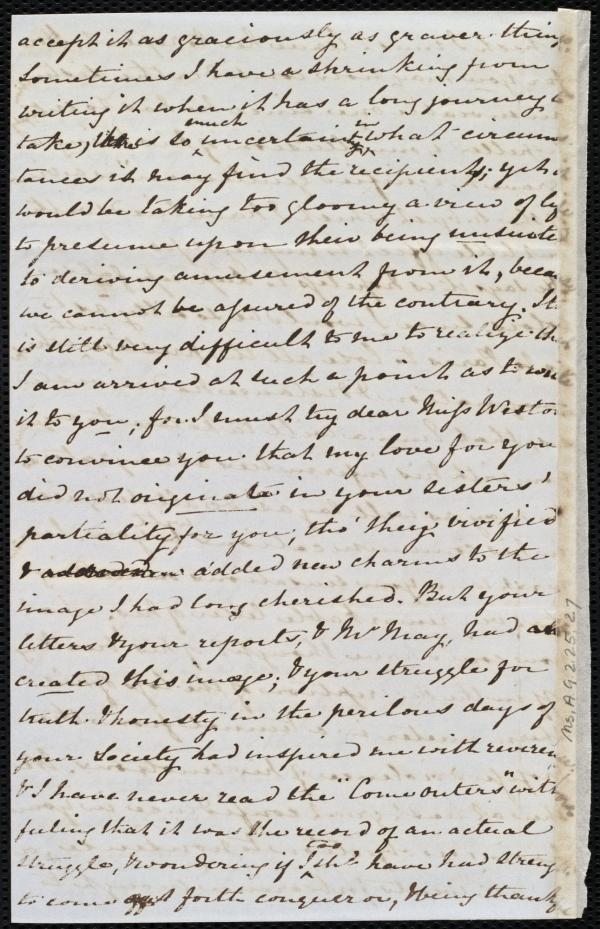 accept it as graciously as graver thing
Sometimes I have a shrinking from
writing it when it has a long journey
take, it is so much uncertain what circums
tances it may find the recipient; yet
would be taking too gloomy a view of lif
to presume upon their being unsuite
to deriving amusement from it, beca
we cannot be assured of the contrary. It
is still very difficult to me to realize tha
I am arrived at such a point as to
it to you, for I must try dear Miss Westo
to convince you that my love for you
did not originate in your sisters'
partiality for you, tho' theirs vivified
& added new charms to the
image I had long cherished. But your
letters & your reports, & Mr May, had
created this image; & your struggle for
truth & honesty in the perilous days of
your Society had inspired me with reveren
& I have never read the "Come outers" with
feeling that it was the record of an actual
struggle, & wondering if I too shd have had streng
to come forth conqueror, & being thank
Ms. A. 9. 2. 25. 27